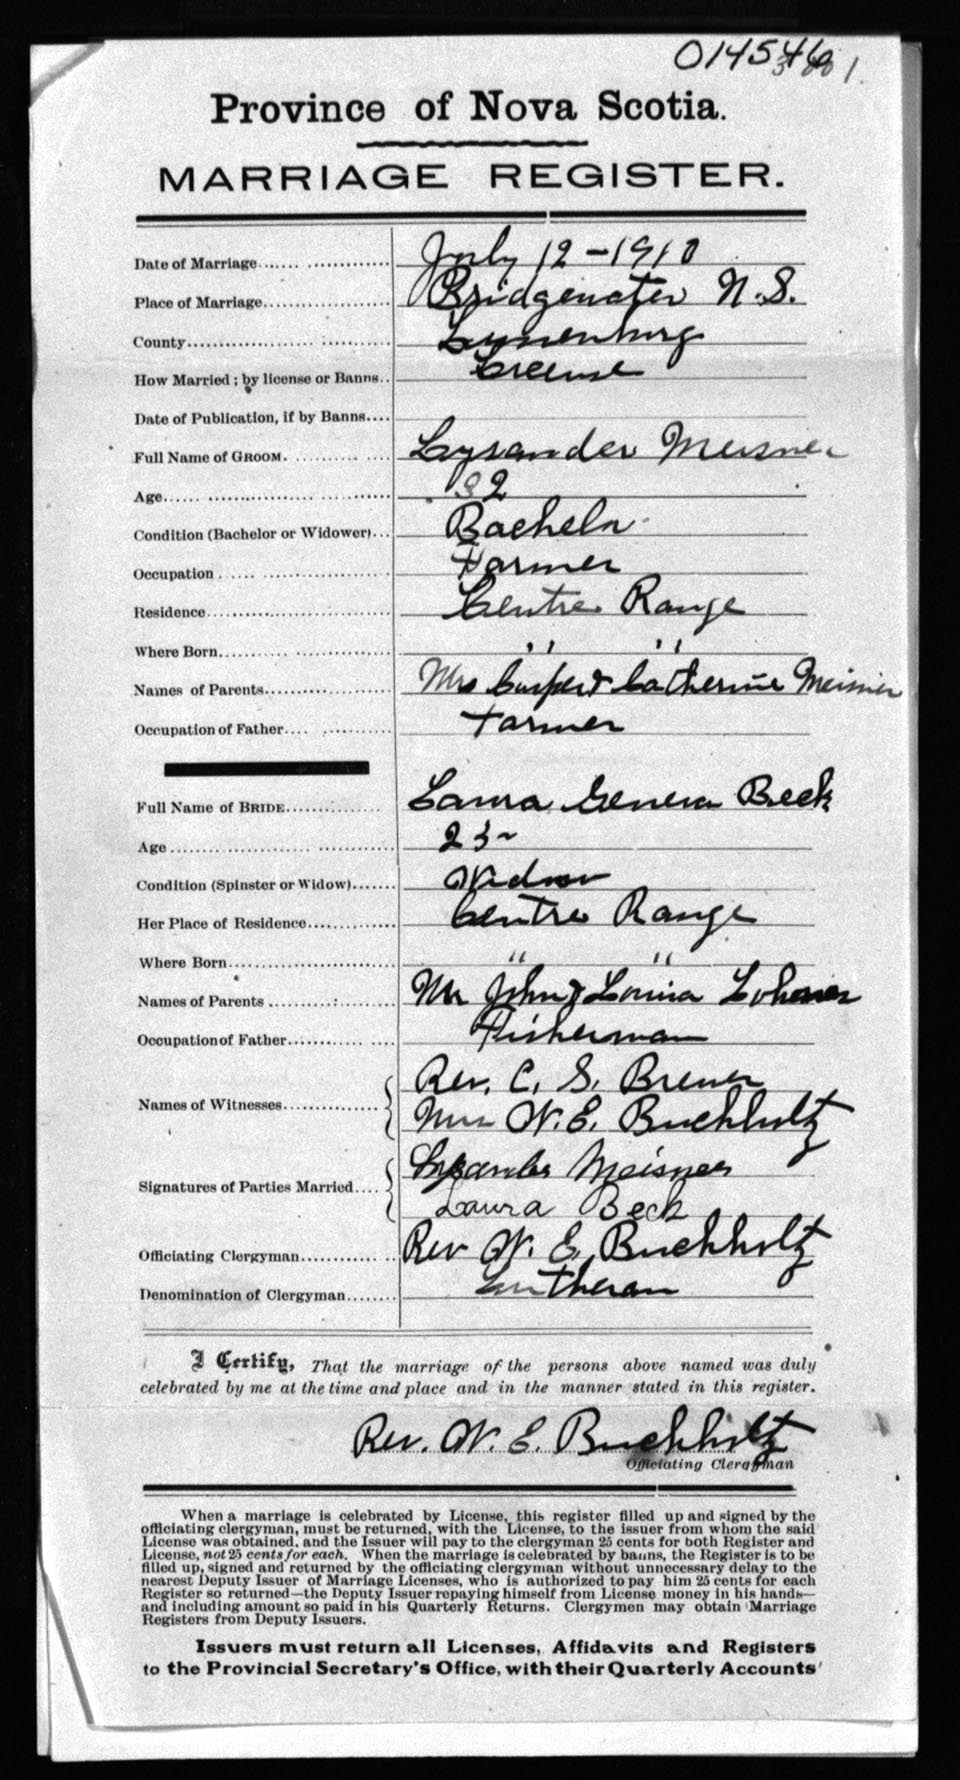 014546
Province of Nova Scotia.
MARRIAGE REGISTER.
Date of Marriage........ July 12 - 1910
Place of Marriage........ Bridgewater N.S.
County........ Lunenburg
How Married; by license or Banns.. License
Date of Publication, if by Banns....
Full Name of GROOM. Lysander Meisner
Age........ 32
Condition (Bachelor or Widower)... Bachelor
Occupation........ Farmer
Residence........ Centre Range
Where Born........ " "
Names of Parents........ Catherine Meisner
Occupation of Father.... Farmer
Full Name of BRIDE........ Laura Geneva Beck
Age........ 23
Condition (Spinster or Widow)....... Widow
Her Place of Residence........ Centre Range
Where Born........ " "
Names of Parents........ Mr John & Louisa
Occupation of Father........ Fisherman
Names of Witnesses........ Rev. C. S. Brewer
W. E. Buchholtz
Signatures of Parties Married.... Lysander Meisner
Laura Beck
Officiating Clergyman........ Rev W. E. Buchholtz
Denomination of Clergyman........ Lutheran
I Certify, That the marriage of the persons above named was duly
celebrated by me at the time and place and in the manner stated in this register.
Rev. W. E. Buchholtz
Officiating Clergyman
When a marriage is celebrated by License, this register filled up and signed by the
officiating clergyman, must be returned, with the License, to the issuer from whom the said
License was obtained, and the Issuer will pay to the clergyman 25 cents for both Register and
License, not 25 cents for each. When the marriage is celebrated by banns, the Register is to be
filled up, signed and returned by the officiating clergyman without unnecessary delay to the
nearest Deputy Issuer of Marriage Licenses, who is authorized to pay him 25 cents for each
Register so returned—the Deputy Issuer repaying himself from License money in his hands—
and including amount so paid in his Quarterly Returns. Clergymen may obtain Marriage
Registers from Deputy Issuers.
Issuers must return all Licenses, Affidavits and Registers
to the Provincial Secretary's Office, with their Quarterly Accounts